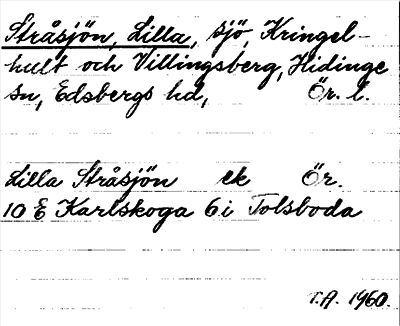 Stråsjön, Lilla, sjö, Kringel-
hult och Villingsberg, Hidinge
sn, Edsbergs hd, Ör. l.
Lilla Stråsjön ek Ör.
10 E Karlskoga 6i Tolsboda
T.A. 1960.